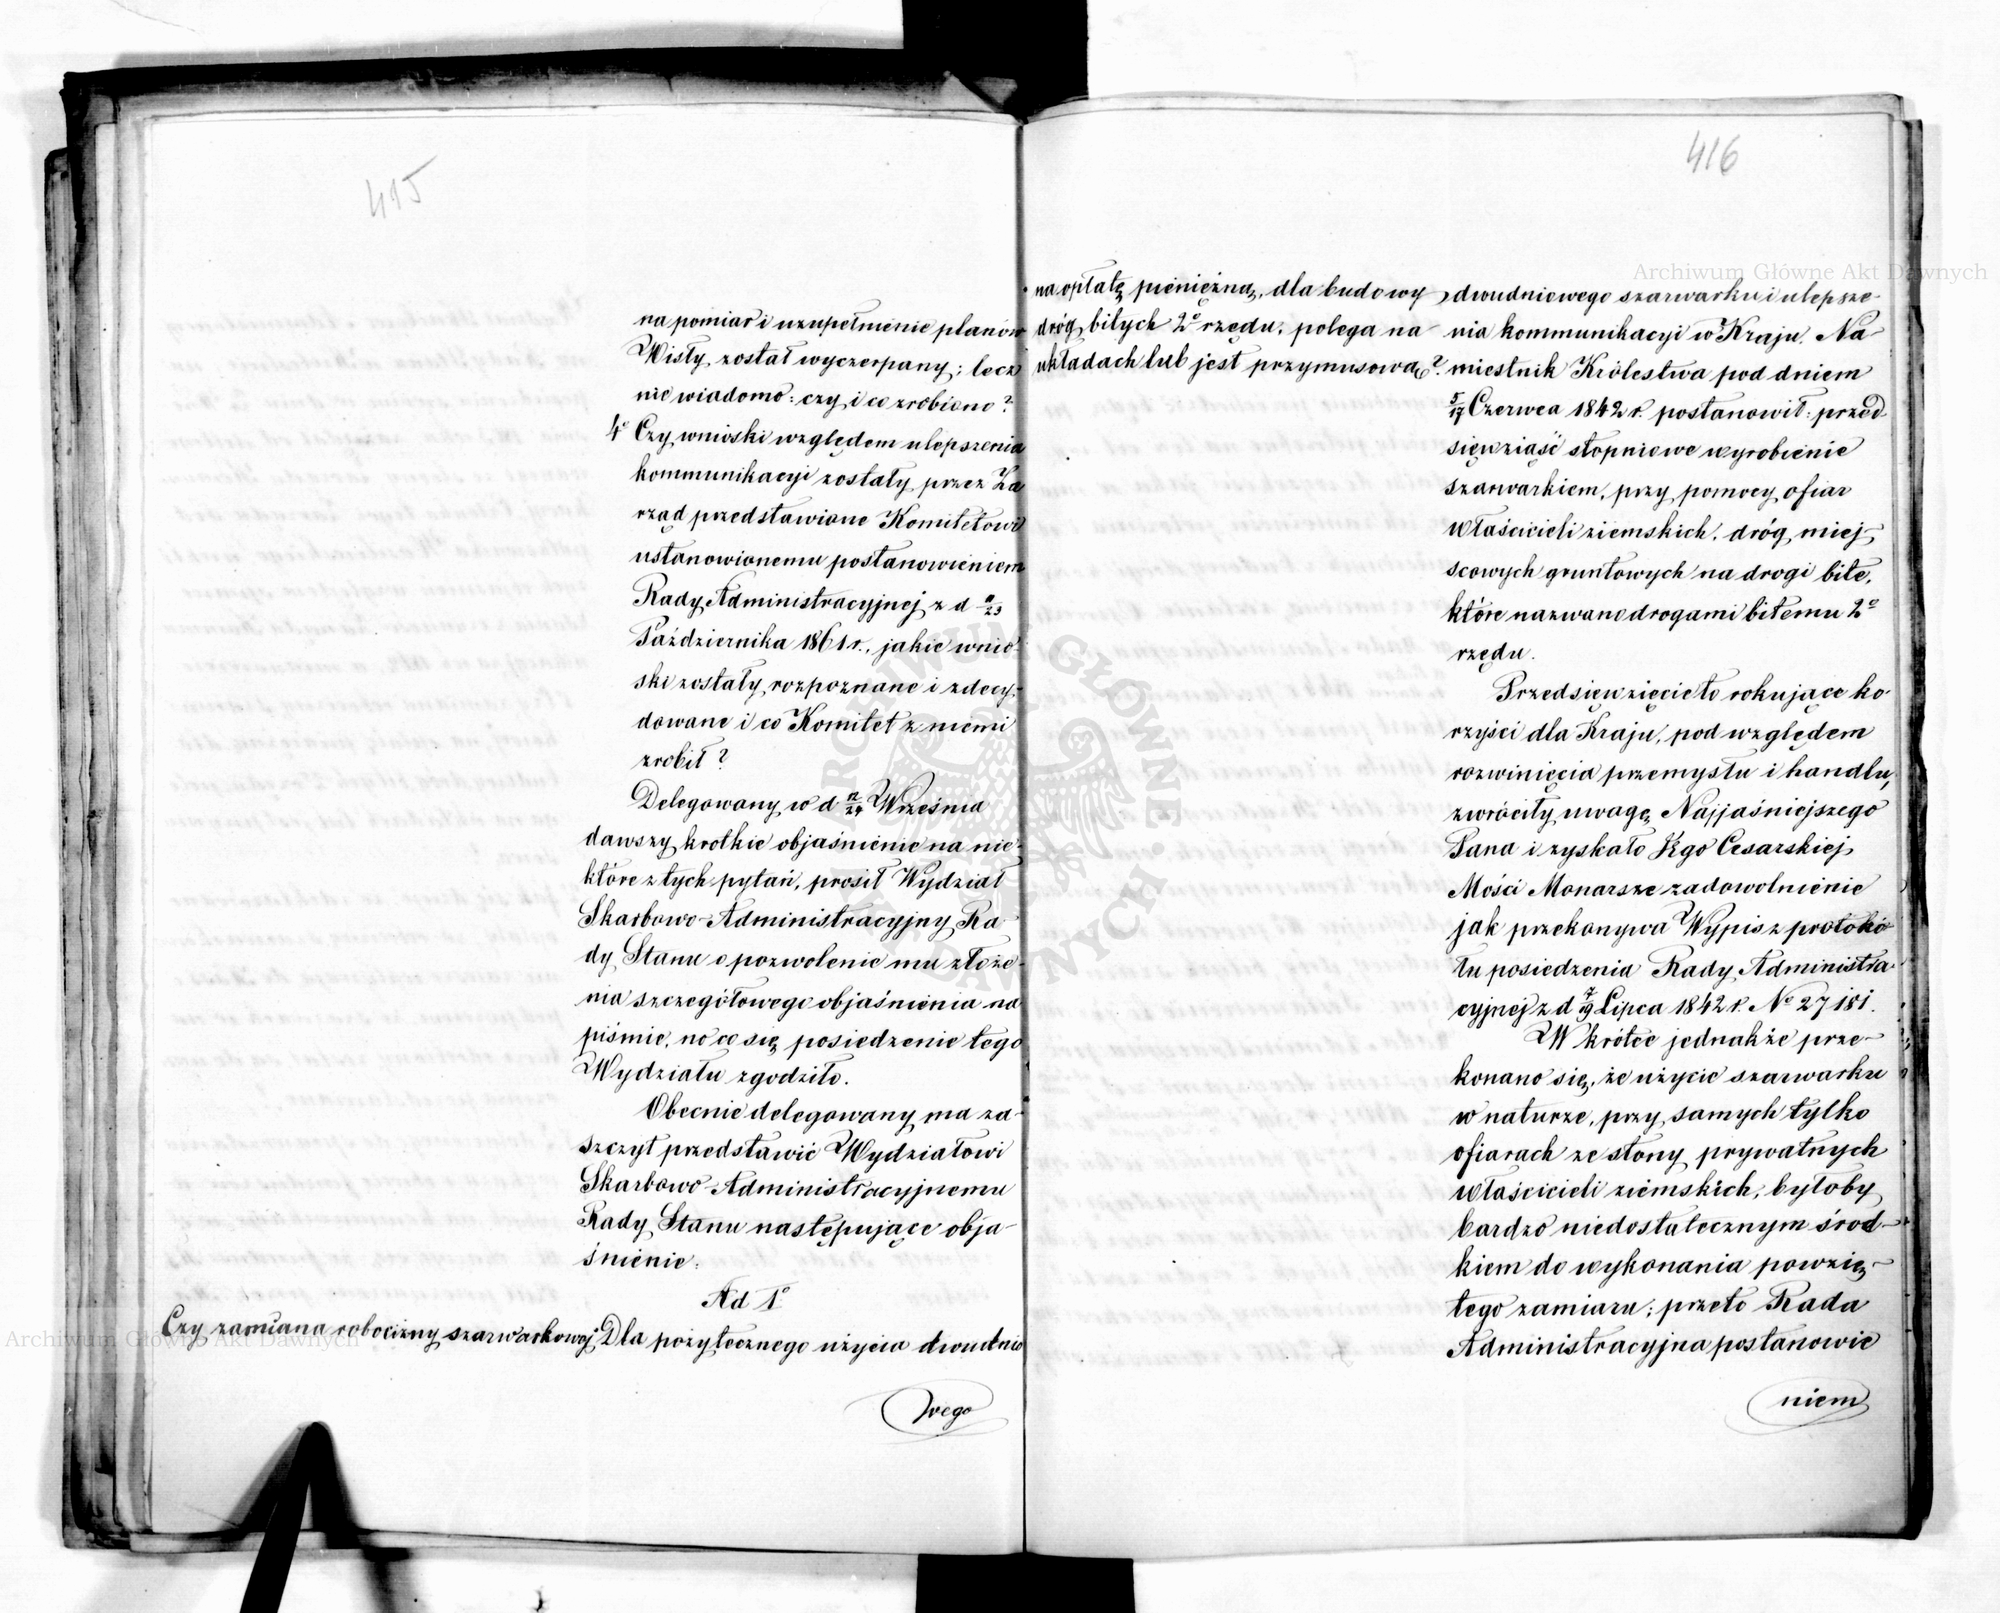 415
na pomiar i uzupełnienie planów
Wisły, został wyczerpany; lecz
nie wiadomo: czy i co zrobiono?
4° Czy wnioski względem ulepszenia
kommunikacyi zostały przez Za
rząd przedstawione Komitetowi
ustanowionemu postanowieniem
Rady Administracyjnej z d 11/23
Października 1861 r., jakie wnio-
ski zostały rozpoznane i zdecy-
dowane i co Komitet z niemi
zrobił?
Delegowany w d 12/24 Września
dawszy krotkie objaśnienie na nie-
które z tych pytań, prosił Wydział
Skarbowo-Administracyjny Ra-
dy Stanu o pozwolenie mu złoże-
nia szczegółowego objaśnienia na
piśmie, na co się posiedzenie tego
Wydziału zgodziło.
Obecnie delegowany ma za-
szczyt przedstawić Wydziałowi
Skarbowo-Administracyjnemu
Rady Stanu następujące obja-
śnienie:
Ad 1°
Czy zamiana robocizny szarwarkowej
Dla pożytecznego użycia dwudnio
wego
416
na opłatę pieniężną, dla budowy
dróg bitych 2° rzędu, polega na
układach lub jest przymusową?
dwudniowego szarwarku i ulepsze-
nia kommunikacyi w Kraju. Na-
miestnik Królestwa pod dniem
5/17 Czerwca 1842 r. postanowił: przed-
sięwziąść stopniowe wyrobienie
szarwarkiem, przy pomocy ofiar
właścicieli ziemskich, dróg miej-
scowych gruntowych na drogi bite,
które nazwano drogami bitemu 2°
rzędu.
Przedsięwzięcie to rokujące ko-
rzyści dla Kraju, pod względem
rozwinięcia przemysłu i handlu,
zwróciły uwagę Najjaśniejszego
Pana i zyskało Jego Cesarskiej
Mości Monarsze zadowolnienie
jak przekonywa Wypis z protokó
łu posiedzenia Rady Administra-
cyjnej z d 7/19 Lipca 1842 r. N° 27181.
W krótce jednakże prze-
konano się, że użycie szarwarku
w naturze, przy samych tylko
ofiarach ze stony prywatnych
właścicieli ziemskich, byłoby
bardzo niedostatecznym środ-
kiem do wykonania powzię-
tego zamiaru; przeto Rada
Administracyjna postanowie
niem
Archiwum Główne Akt Dawnych
Archiwum Główne Akt Dawnych
ARCHIWUM GŁÓWNE AKT DAWNYCH